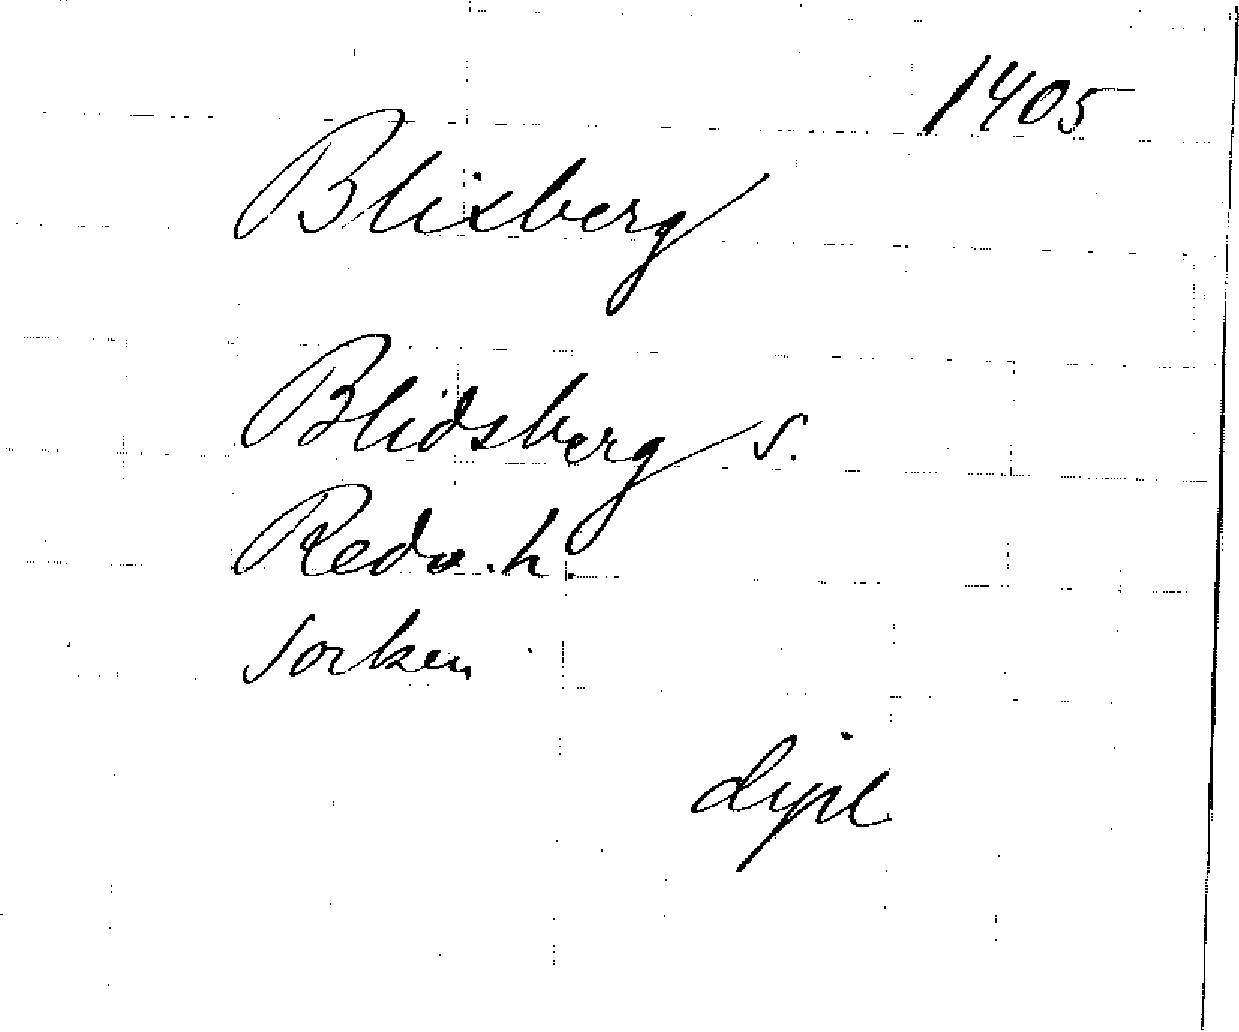 1405
Blixberg
Blidsberg s.
Redv. h.
socken
dipl